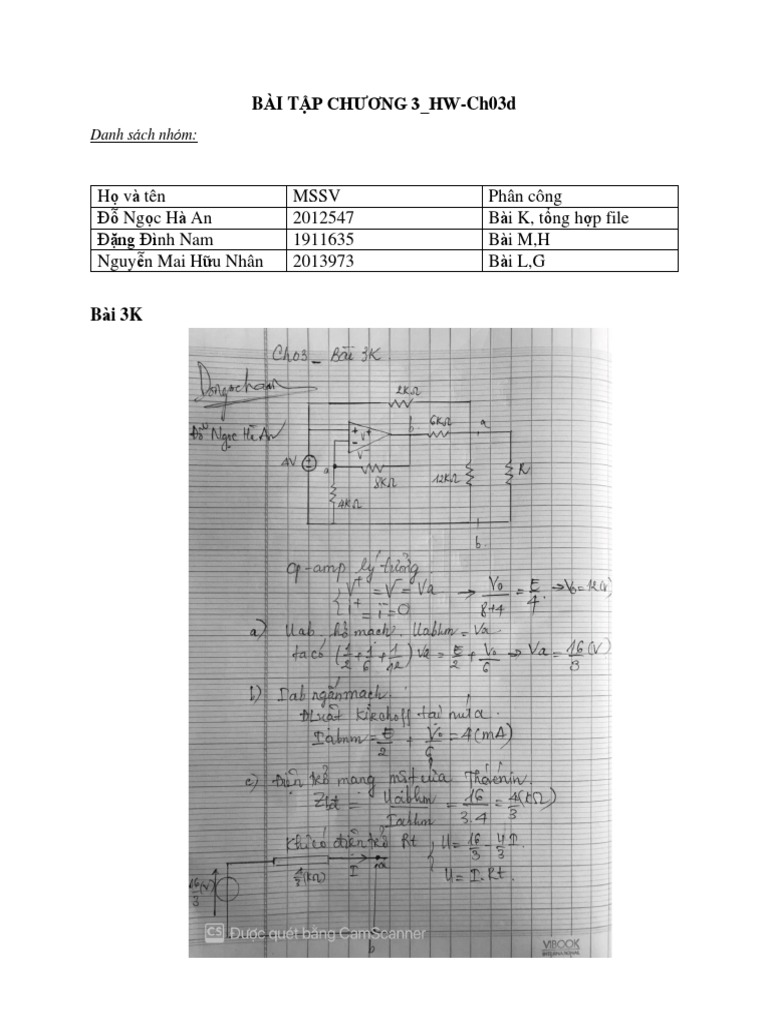 BÀI TẬP CHƯƠNG 3_HW-Ch03d
Danh sách nhóm:
Họ và tên MSSV Phân công
Đỗ Ngọc Hà An 2012547 Bài K, tổng hợp file
Đặng Đình Nam 1911635 Bài M,H
Nguyễn Mai Hữu Nhân 2013973 Bài L,G
Bài 3K
Ch03_ Bài 3K.
2KΩ
6KΩ a
b
V+
V-
Đỗ Ngọc Hà An
4V
a
8KΩ
12KΩ
R
4KΩ
b.
Op-amp lý tưởng.
{V+ = V- = Va → V0/(8+4) = E/4 → V0 = 12(V)
i+ = i- = 0
a) Uab hở mạch. Uabhm = Va
ta có (1/2 + 1/6 + 1/12) Va = E/2 + V0/6 → Va = 16/3 (V)
b) Iab ngắn mạch.
ĐLuật Kirchoff tại nút a.
Iabnm = E/2 + V0/6 = 4(mA)
c) Điện trở mạng một cửa Thévenin.
= Uabhm/Iabnm = 16/3.4 = 4/3 (kΩ)
Khi có điện trở Rt {U = 16/3 - 4/3 I.
U = I.Rt.
16/3 (V)
4/3 (kΩ)
I
a
b
CS Được quét bằng CamScanner
VIBOOK